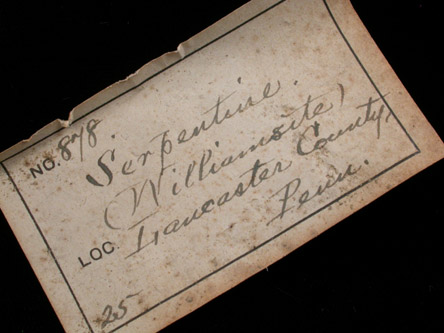 NO. 878
Serpentine.
(Williamsite)
LOC. Lancaster County,
Penn.
25